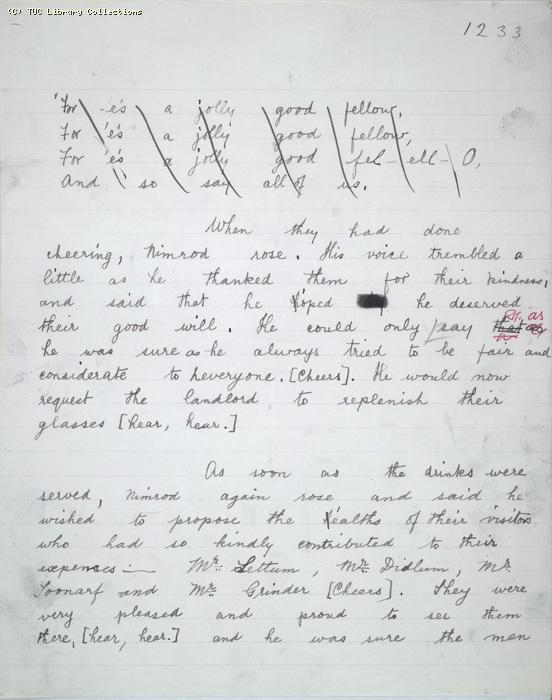 (C) TUC Library Collections
1233
'For 'e's a jolly good fellow,
For 'e's a jolly good fellow,
For 'e's a jolly good fel-ell-O,
And so say all of us.
When they had done
cheering, Nimrod rose. His voice trembled a
little as he thanked them for their kindness,
and said that he 'oped he deserved
their good will. He could only say that as
he was sure as he always tried to be fair and
considerate to heveryone. [Cheers]. He would now
request the landlord to replenish their
glasses [Hear, hear.]
As soon as the drinks were
served, Nimrod again rose and said he
wished to propose the 'ealths of their visitors
who had so kindly contributed to their
expences:— Mr. Lettum, Mr. Didlum, Mr.
Toonarf and Mr. Grinder [Cheers]. They were
very pleased and proud to see them
there, [hear, hear.] and he was sure the men